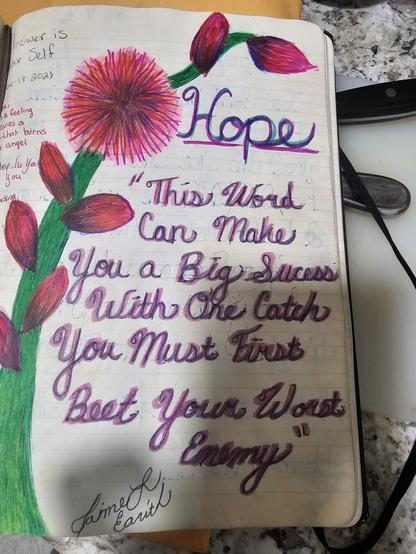 Answer is
our Self
18 2023
a feeling
that burns
angel
You
Hope
"This Word
Can Make
You a Big Sucess
With One Catch
You Must First
Beet Your Worst
Enemy"
Jaime L
Earith